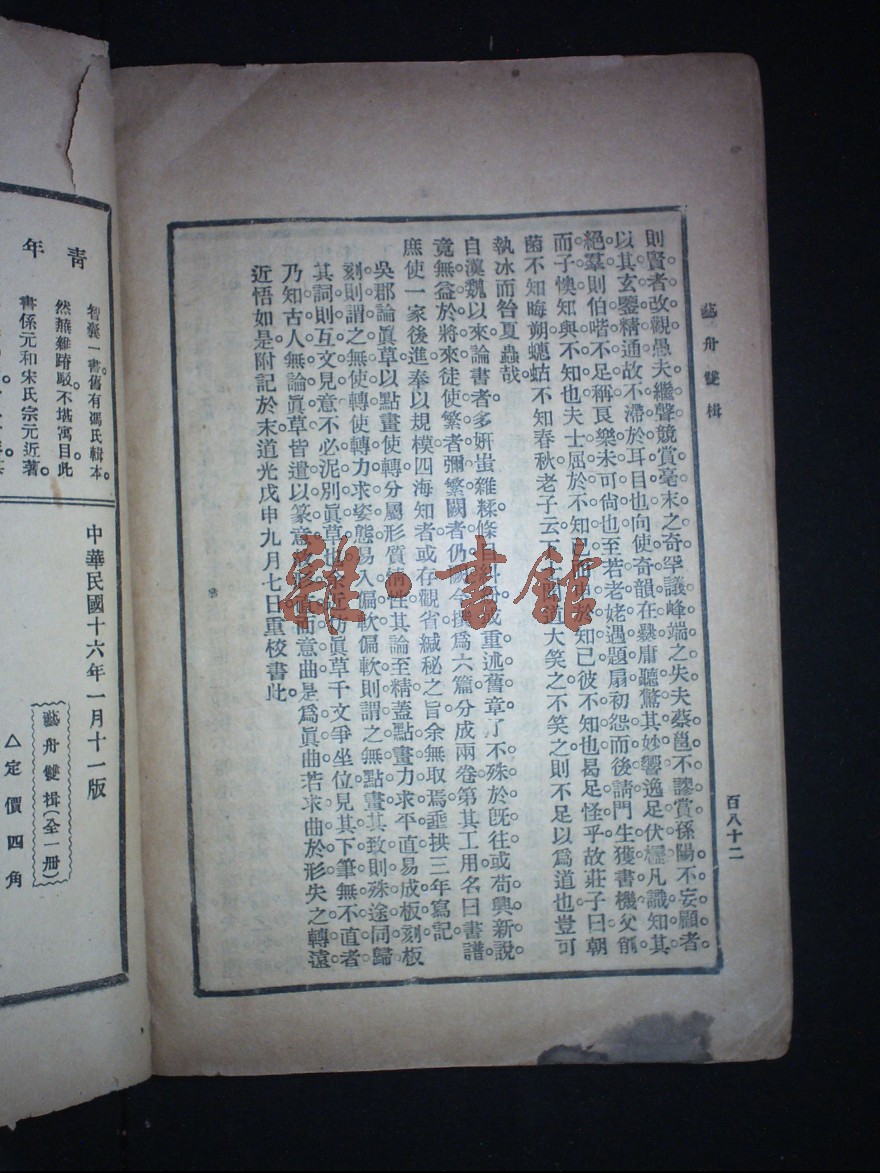 藝舟雙楫
百八十二
則賢者改觀愚夫繼聲競賞毫末之奇罕議峰端之失夫蔡邕不謬賞孫陽不妄顧者
以其玄鑒精通故不滯於耳目也向使奇韻在爨庸聽驚其妙響逸足伏櫪凡識知其
絕羣則伯喈不足稱良樂未可尚也至若老姥遇題扇初怨而後請門生獲書機父削
而子懊知與不知也夫士屈於不知己而申於知己彼不知也曷足怪乎故莊子曰朝
菌不知晦朔蟪蛄不知春秋老子云下士聞道大笑之不笑之則不足以爲道也豈可
執冰而咎夏蟲哉
自漢魏以來論書者多妍蚩雜糅條目糾紛或重述舊章了不殊於既往或苟興新說
竟無益於將來徒使繁者彌繁闕者仍闕今撰爲六篇分成兩卷第其工用名曰書譜
庶使一家後進奉以規模四海知者或存觀省緘秘之旨余無取焉垂拱三年寫記
吳郡論眞草以點畫使轉分屬形質情性其論至精蓋點畫力求平直易成板刻板
刻則謂之無使轉使轉力求姿態易入偏軟偏軟則謂之無點畫其致則殊途同歸
其詞則互文見意不必泥別眞草也余近仿眞草千文爭坐位見其下筆無不直者
乃知古人無論眞草皆遣以篆意形直而意曲是爲眞曲若求曲於形失之轉遠
近悟如是附記於末道光戊申九月七日重校書此
雜·書館
中華民國十六年一月十一版
藝舟雙楫(全一册)
△定價四角
靑年
智囊一書舊有馮氏輯本
然蕪雜踳駁不堪寓目此
書係元和宋氏宗元近著